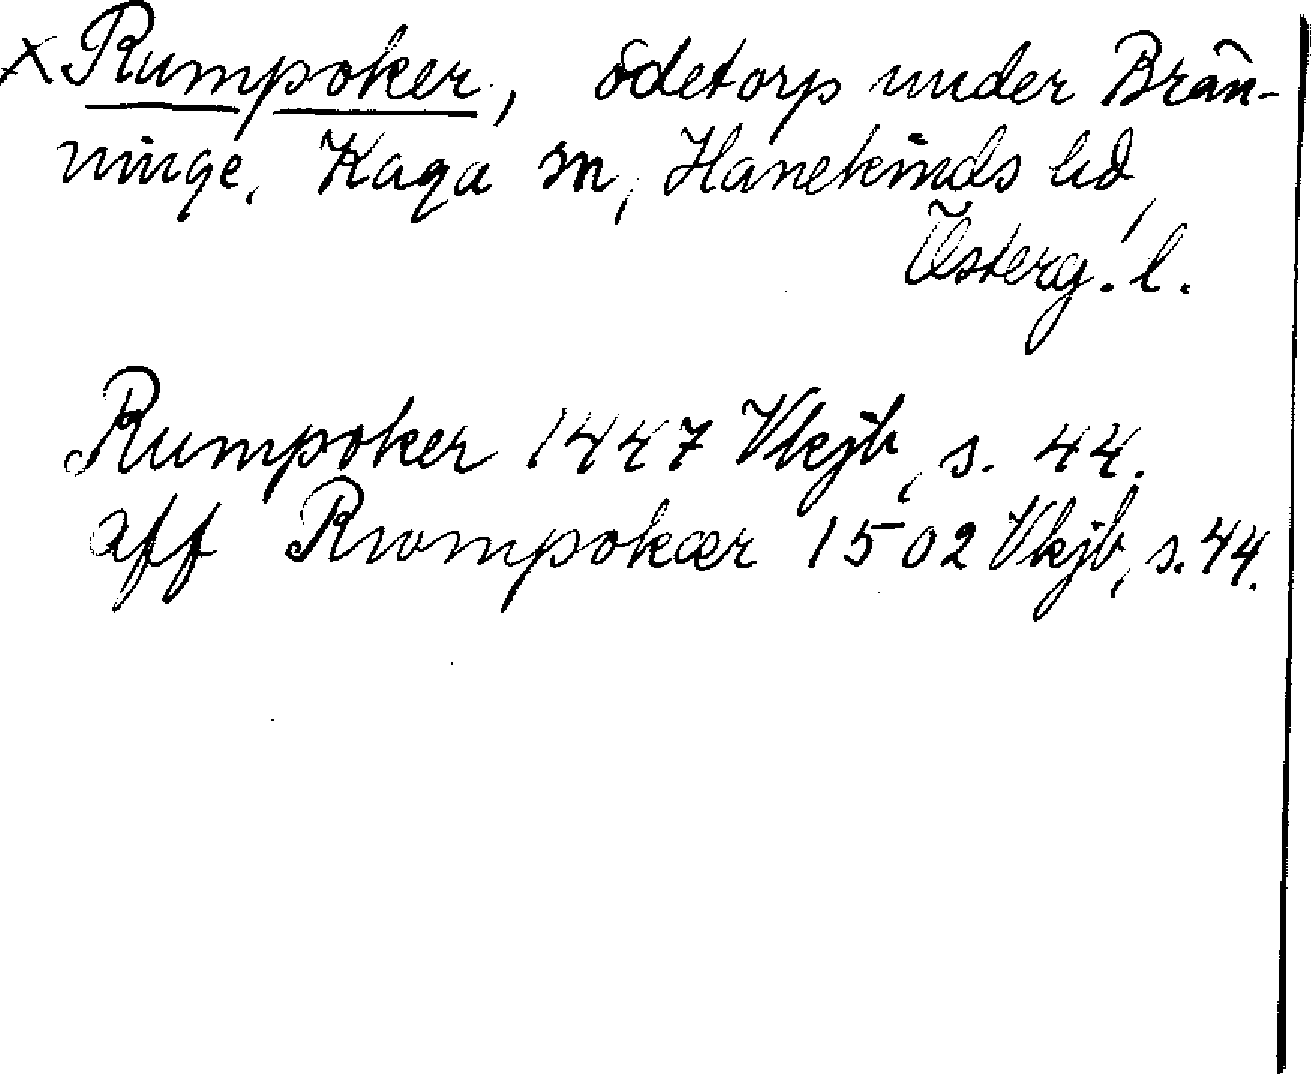 × Rumpoker, ödetorp under Brän-
ninge, Kaga sn, Hanekinds hd,
Österg. l.
Rumpoker 1447 Vkjb, s. 44.
aff Rwmpokær 1502 Vkjb, s. 44.